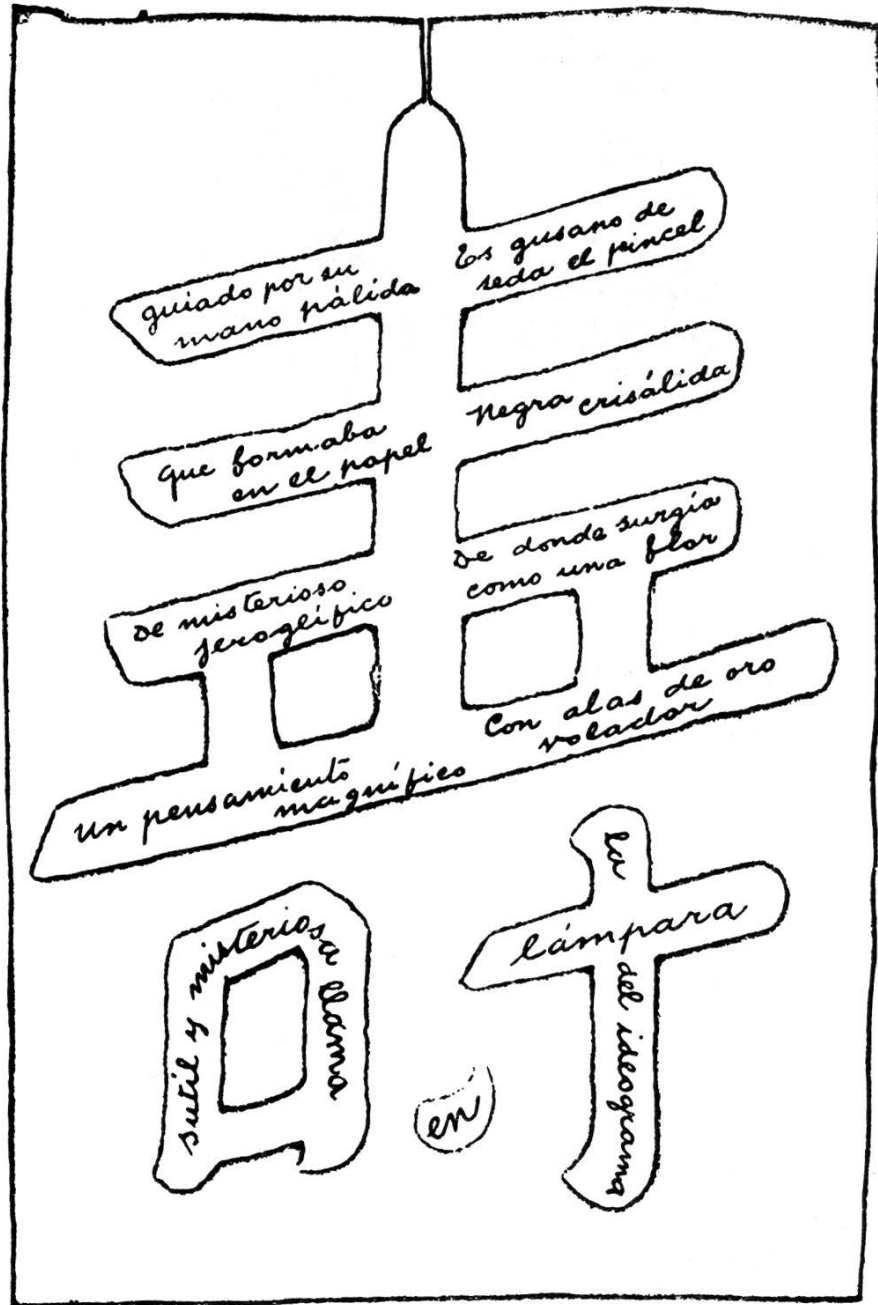 guiado por su
mano pálida
Es gusano de
seda el pincel
que formaba
en el papel
Negra crisálida
De misterioso
jeroglífico
De donde surgía
como una flor
un pensamiento
magnífico
Con alas de oro
volador
sutil y misteriosa llama
en
la
lámpara
del ideograma